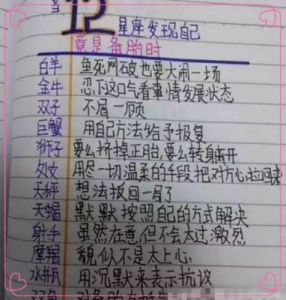 当12星座发现自己
竟是备胎时
白羊 鱼死网破也要大闹一场
金牛 忍下这口气看事情发展状态
双子 不屑一顾
巨蟹 用自己方法给予报复
狮子 要么挤掉正胎,要么转身离开
处女 用尽一切温柔的手段把对方心拉回来
天秤 想法扳回一局了
天蝎 默默按照自己的方式解决
射手 虽然在意,但不会太过激烈
摩羯 貌似不是太上心
水瓶 用沉默来表示抗议